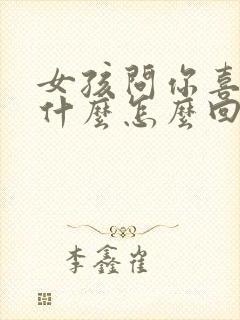 女孩問你喜
什麼怎麼回
李鑫崔